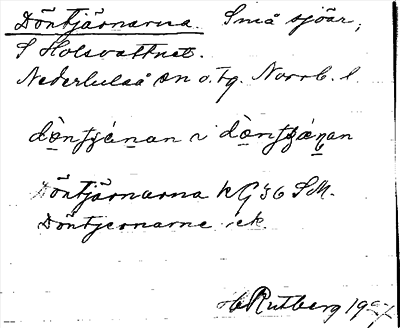 Döntjärnarna. Små sjöar,
S Holsvattnet.
Nederluleå sn o. tg. Norrb. l.
dòntjánan i dòntjánan
Döntjärnarna kG 36 S.M.
Döntjernarne ek
H Rutberg 19